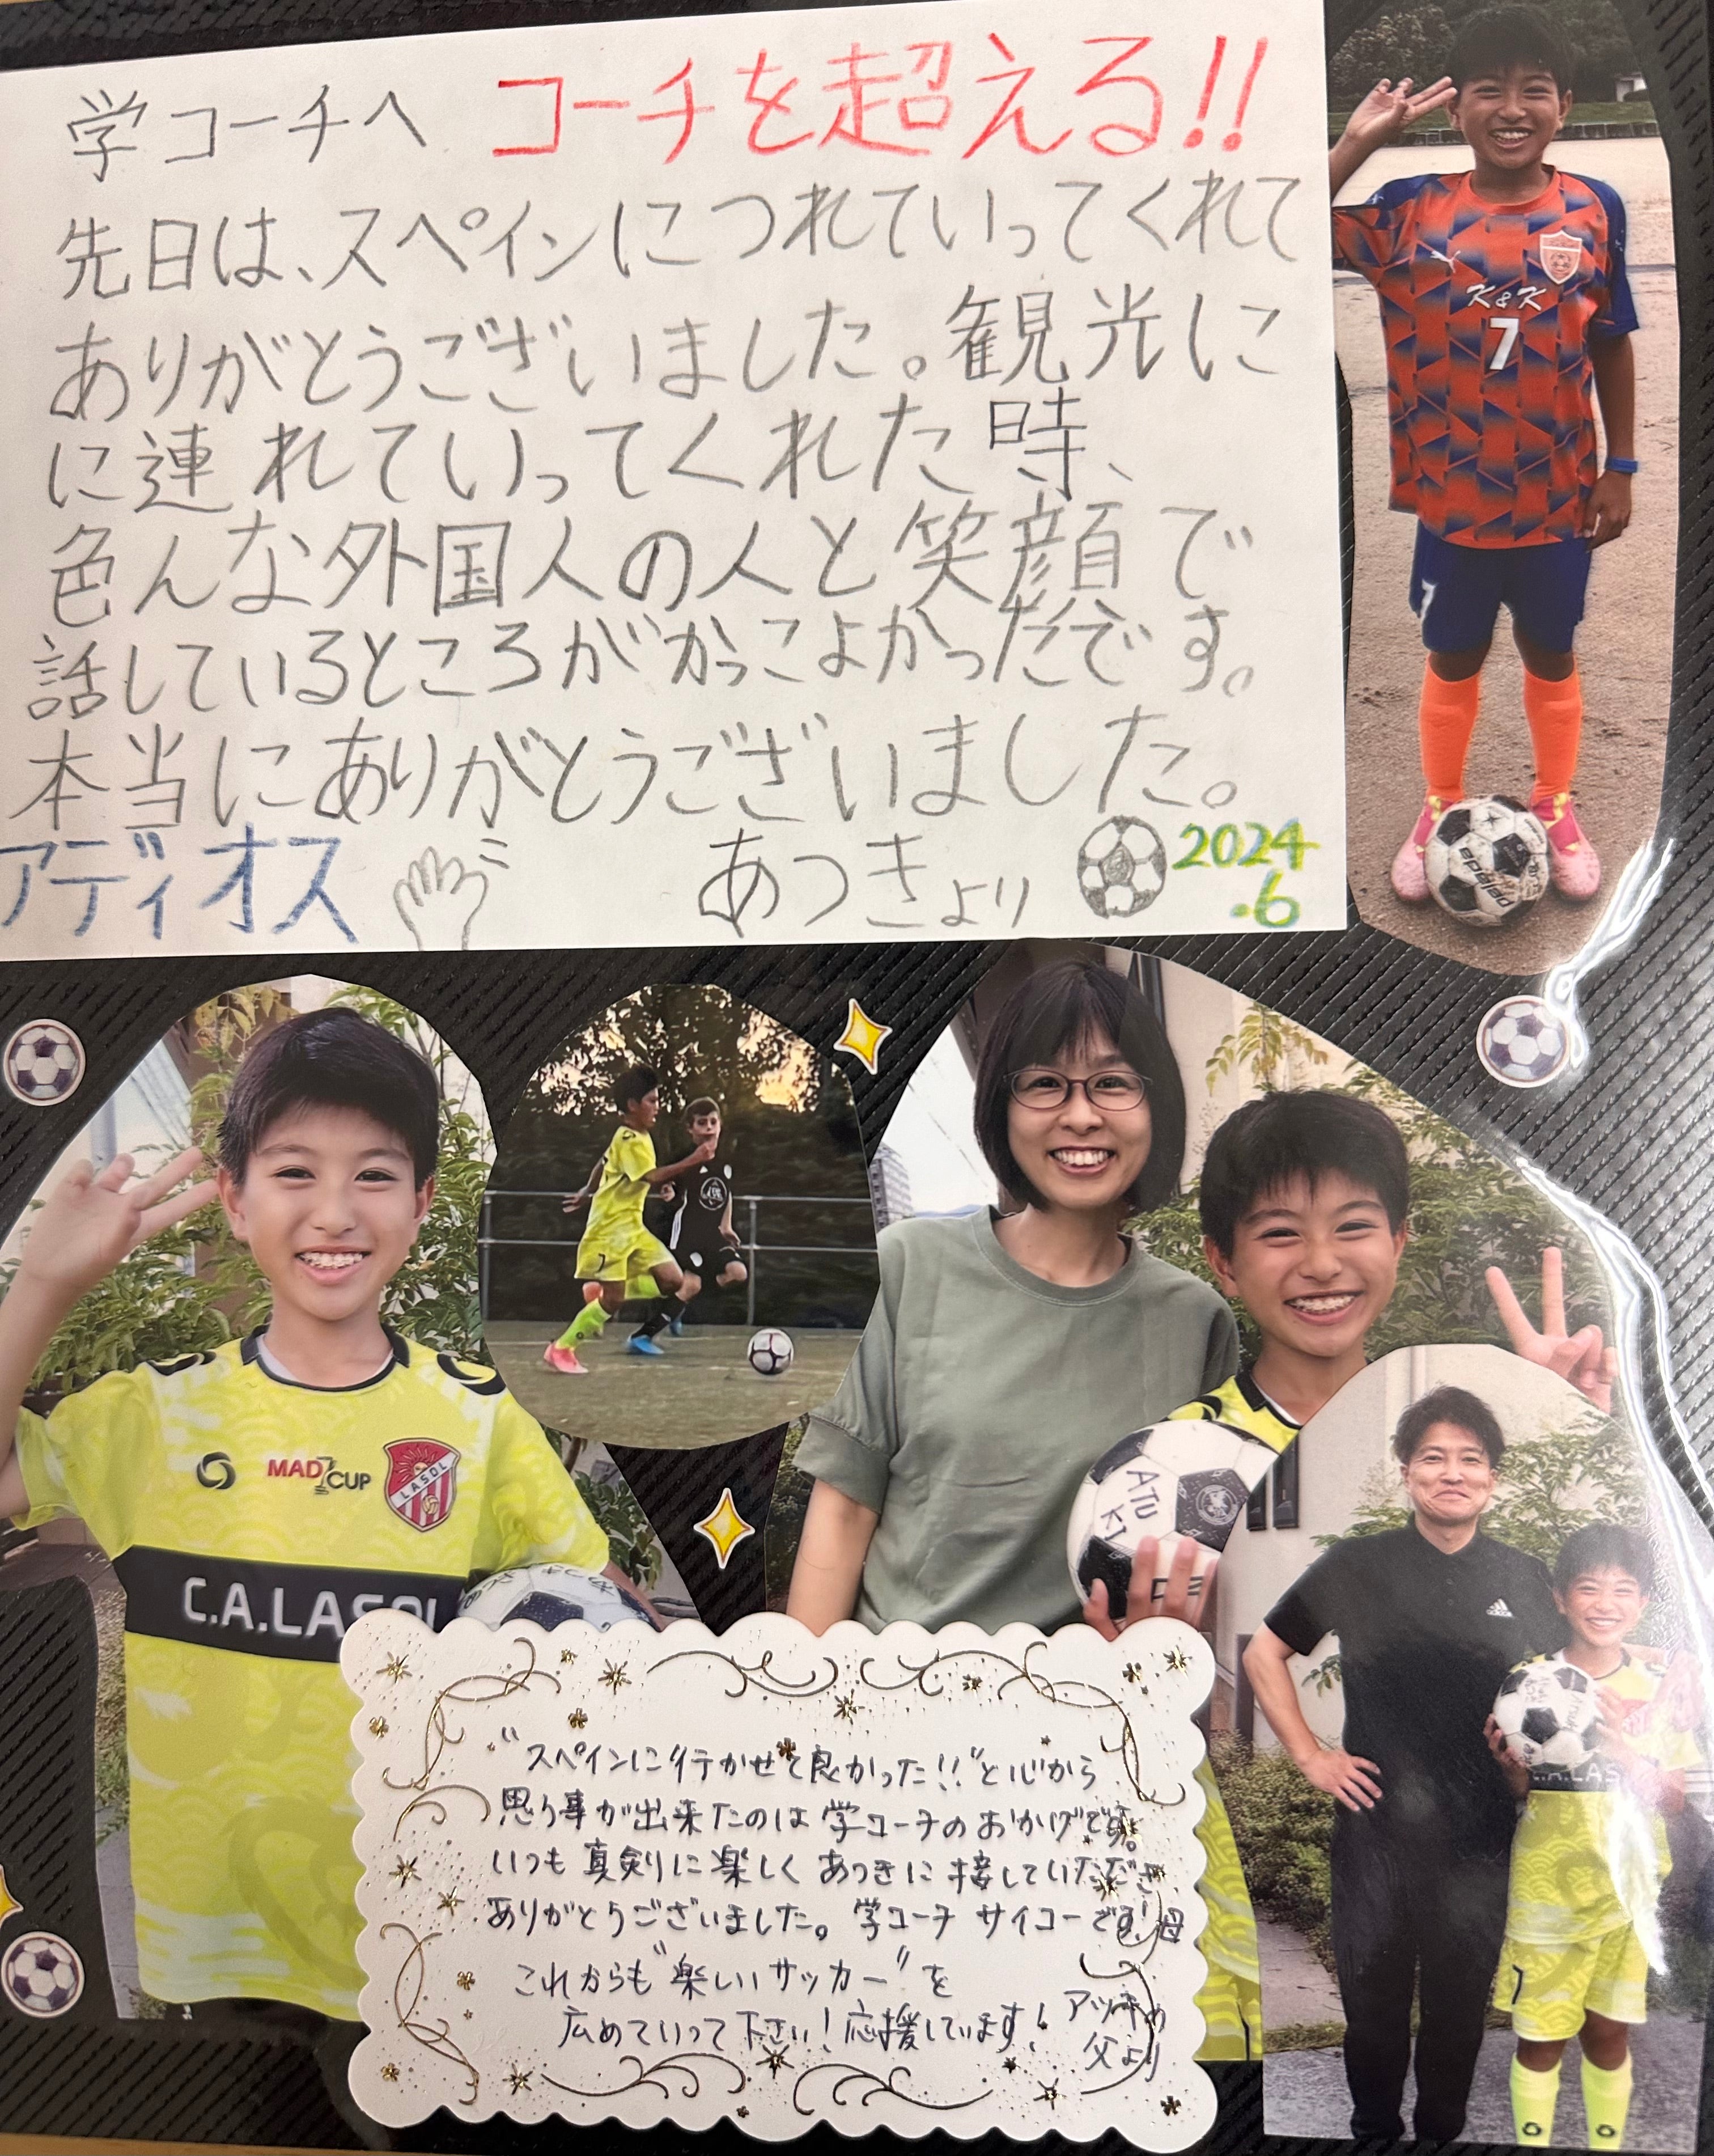 学コーチへ コーチを超える!!
先日は、スペインにつれていってくれて
ありがとうございました。観光に
に連れていってくれた時、
色んな外国人の人と笑顔で
話しているところがかっこよかったです。
本当にありがとうございました。
アディオス あつきより 2024
.6
K&K
7
7
MAD CUP
LASOL
C.A.LASOL
ATU
KI
C.A.LAS
7
"スペインに行かせて良かった!!"と心から
思う事が出来たのは学コーチのおかげです。
いつも真剣に楽しくあつきに接していただき
ありがとうございました。学コーチ サイコーです! 母
これからも"楽しいサッカー"を
広めていって下さい!応援しています! アツキの
父より